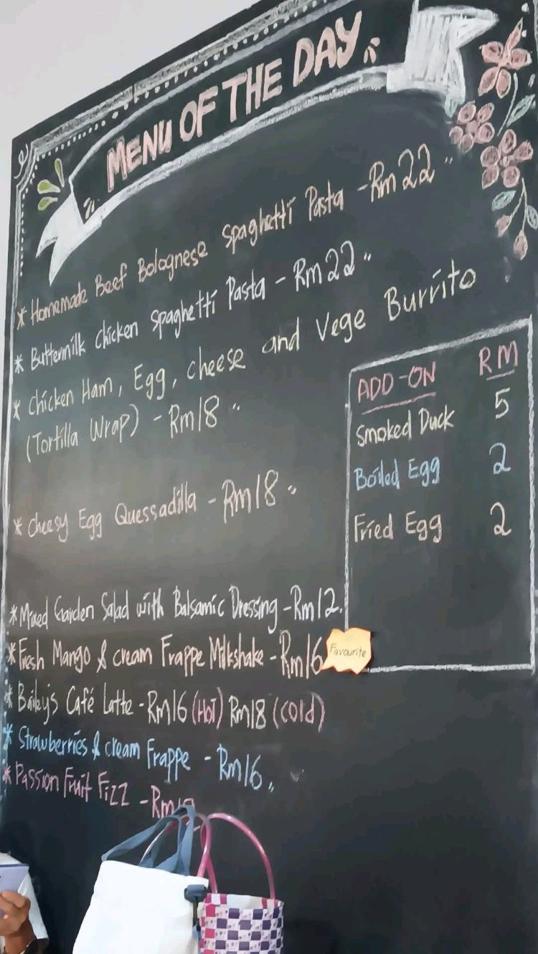 MENU OF THE DAY
* Homemade Beef Bolognese Spaghetti Pasta - Rm22
* Buttermilk Chicken Spaghetti Pasta - Rm22
* Chicken Ham, Egg, cheese and Vege Burrito
(Tortilla Wrap) - Rm18
* Cheesy Egg Quessadilla - Rm18
ADD-ON RM
Smoked Duck 5
Boiled Egg 2
Fried Egg 2
* Mixed Garden Salad with Balsamic Dressing - Rm12.
* Fresh Mango & cream Frappe Milkshake - Rm16
Favourite
* Bailey's Café Latte - Rm16 (HoT) Rm18 (cold)
* Strawberries & cream Frappe - Rm16
* Passion Fruit Fizz -